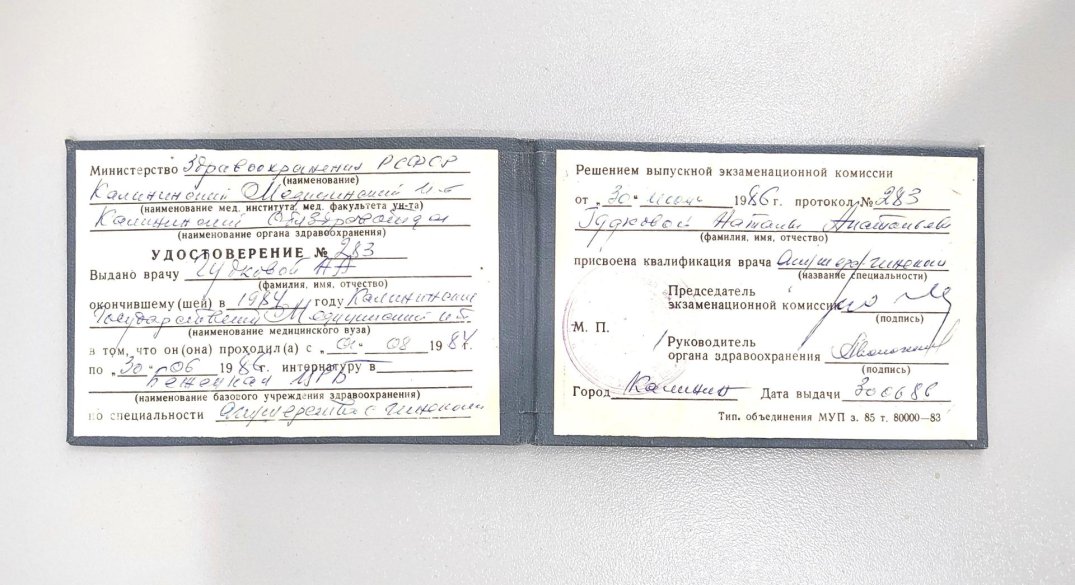 Министерство Здравоохранения РСФСР
(наименование)
Калининский Медицинский ин-т
(наименование мед. института, мед. факультета ун-та)
Калининский Облздравотдел
(наименование органа здравоохранения)
УДОСТОВЕРЕНИЕ № 283
Выдано врачу Гудковой НА
(фамилия, имя, отчество)
окончившему(шей) в 1984 году Калининский
Государственный Медицинский ин-т
(наименование медицинского вуза)
в том, что он(она) проходил(а) с „01" 08 1984 г.
по „30" 06 1986 г. интернатуру в
Бежецкая ЦРБ
(наименование базового учреждения здравоохранения)
по специальности Акушерство гинекология
Решением выпускной экзаменационной комиссии
от „30" июня 1986 г. протокол № 283
Гудковой Наталье Анатольевне
(фамилия, имя, отчество)
присвоена квалификация врача
(название специальности)
Председатель
экзаменационной комиссии
(подпись)
М. П.
Руководитель
органа здравоохранения
(подпись)
Город Калинин Дата выдачи 300686
Тип. объединения МУП з. 85 т. 80000—83